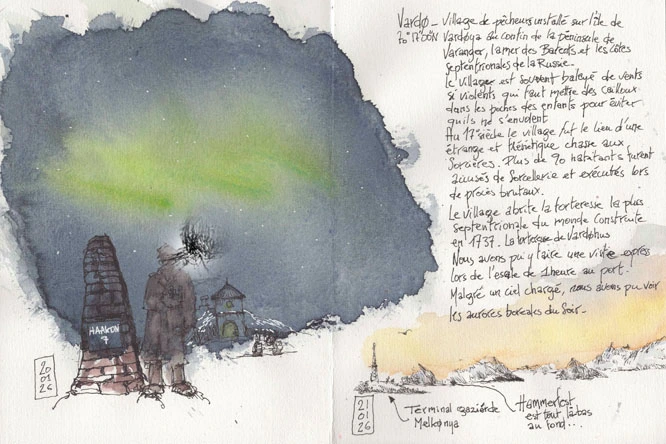 HAAKON
7
20
01
26
Vardø _ Village de pêcheurs installé sur l'île de
70°17'00N Vardøya au confin de la péninsule de
Varanger, la mer des Barents et les côtes
septentrionales de la Russie.
Le village est souvent balayé de vents
si violents qu'il faut mettre des cailloux
dans les poches des enfants pour éviter
qu'ils ne s'envolent
Au 17e siècle le village fut le lieu d'une
étrange et frénétique chasse aux
Sorcières. Plus de 90 habitants furent
accusés de Sorcellerie et exécutés lors
de procès brutaux.
Le village abrite la forteresse la plus
septentrionale du monde construite
en 1737. La forteresse de Vardøhus
Nous avons pu y faire une visite express
lors de l'escale de 1heure au port.
Malgré un ciel chargé, nous avons pu voir
les aurores boréales du soir.
21
01
26
Terminal gazier de
Melkøya
Hammerfest
est tout là bas
au fond...